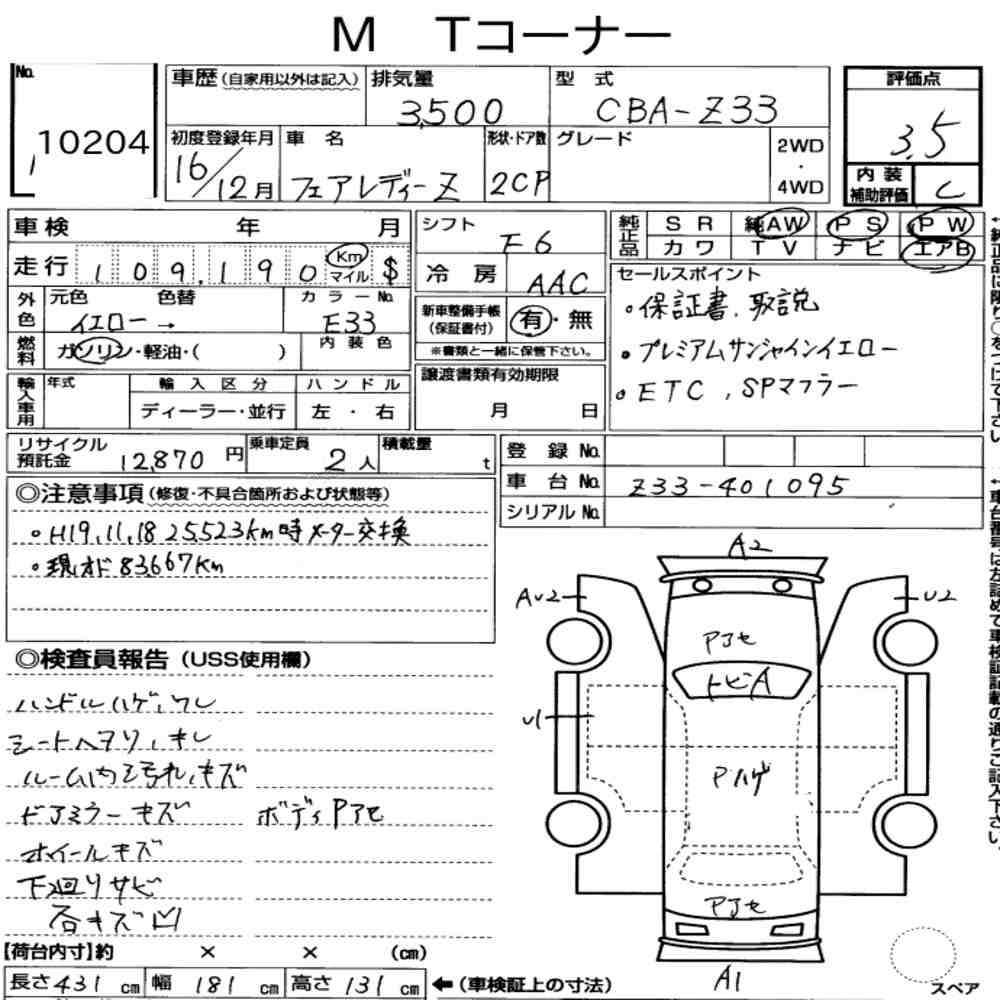 M Tコーナー
No.
10204
車歴 (自家用以外は記入)
排気量
3,500
型 式
CBA-Z33
評価点
3.5
初度登録年月
16/12月
車 名
フェアレディーZ
形状・ドア数
2CP
グレード
2WD
・
4WD
内 装
補助評価
C
車検 年 月
シフト
F6
純正品
S R 純AW P S P W
カワ T V ナビ エアB
走行 109,190 Km マイル $
冷 房
AAC
セールスポイント
。保証書、取説
・プレミアムサンシャインイエロー
。ETC、SPマフラー
外色
元色 色替
イエロー →
カラーNo.
E33
新車整備手帳
(保証書付)
有・無
※書類と一緒に保管下さい。
燃料
ガソリン・軽油・( )
内 装 色
輸入車用
年式
輸 入 区 分
ディーラー・並行
ハ ン ド ル
左 ・ 右
譲渡書類有効期限
月 日
リサイクル
預託金
12,870円
乗車定員
2人
積載量
t
登 録 No.
車 台 No. Z33-401095
シリアル No.
◎注意事項(修復・不具合箇所および状態等)
。H19,11,18 25,523Km時メーター交換
。現オド83,667Km
◎検査員報告(USS使用欄)
ハンドルハゲ,ワレ
シートヘタリ,キレ
ルーム内汚れ,キズ
ドアミラーキズ
ボディPアセ
ホイールキズ
下廻りサビ
各キズ凹
A2
AU2
U2
Pアセ
トビA
U1
Pハゲ
Pアセ
A1
スペア
【荷台内寸】約 × × (cm)
長さ431cm 幅181cm 高さ131cm ←(車検証上の寸法)
↑純正品に限り○をつけて下さい。
↑車台番号は左詰めで車検証記載の通りご記入下さい。